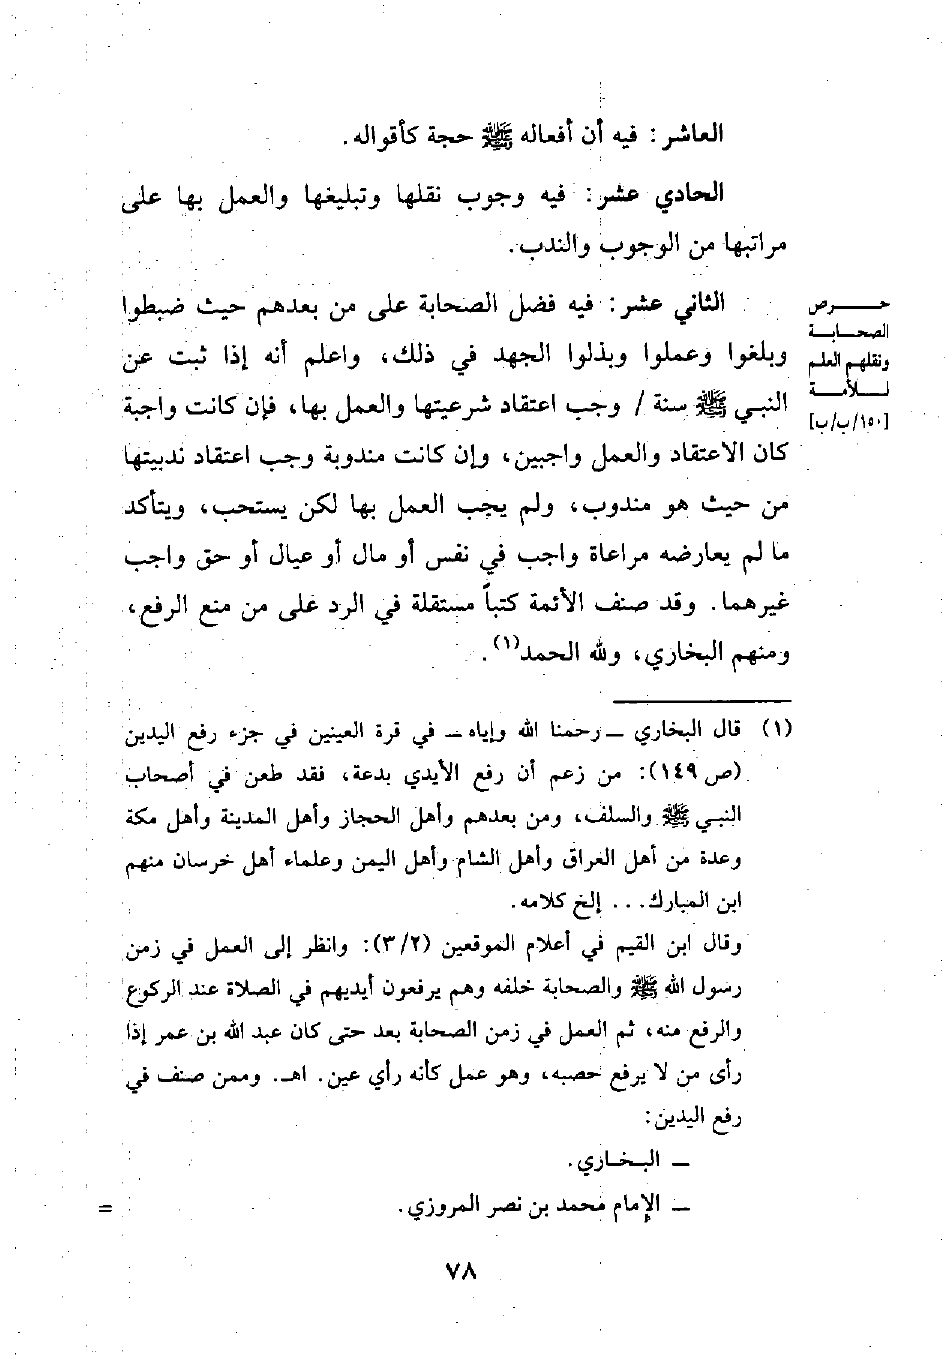 العاشر: فيه أن أفعاله ﷺ حجة كأقواله.
الحادي عشر: فيه وجوب نقلها وتبليغها والعمل بها على
مراتبها من الوجوب والندب.
الثاني عشر: فيه فضل الصحابة على من بعدهم حيث ضبطوا
وبلغوا وعملوا وبذلوا الجهد في ذلك، واعلم أنه إذا ثبت عن
النبي ﷺ سنة / وجب اعتقاد شرعيتها والعمل بها، فإن كانت واجبة
كان الاعتقاد والعمل واجبين، وإن كانت مندوبة وجب اعتقاد ندبيتها
من حيث هو مندوب، ولم يجب العمل بها لكن يستحب، ويتأكد
ما لم يعارضه مراعاة واجب في نفس أو مال أو عيال أو حق واجب
غيرهما. وقد صنف الأئمة كتباً مستقلة في الرد على من منع الرفع،
ومنهم البخاري، ولله الحمد(١).
حرص
الصحابة
ونقلهم العلم
للأمة
[١٥٠/ب/ب]
(١) قال البخاري ــ رحمنا الله وإياه ــ في قرة العينين في جزء رفع اليدين
(ص ١٤٩): من زعم أن رفع الأيدي بدعة، فقد طعن في أصحاب
النبي ﷺ والسلف، ومن بعدهم وأهل الحجاز وأهل المدينة وأهل مكة
وعدة من أهل العراق وأهل الشام وأهل اليمن وعلماء أهل خرسان منهم
ابن المبارك... إلخ كلامه.
وقال ابن القيم في أعلام الموقعين (٣/٢): وانظر إلى العمل في زمن
رسول الله ﷺ والصحابة خلفه وهم يرفعون أيديهم في الصلاة عند الركوع
والرفع منه، ثم العمل في زمن الصحابة بعد حتى كان عبد الله بن عمر إذا
رأى من لا يرفع حصبه، وهو عمل كأنه رأي عين. اهـ. وممن صنف في
رفع اليدين:
ــ البخاري.
ــ الإمام محمد بن نصر المروزي. =
٧٨